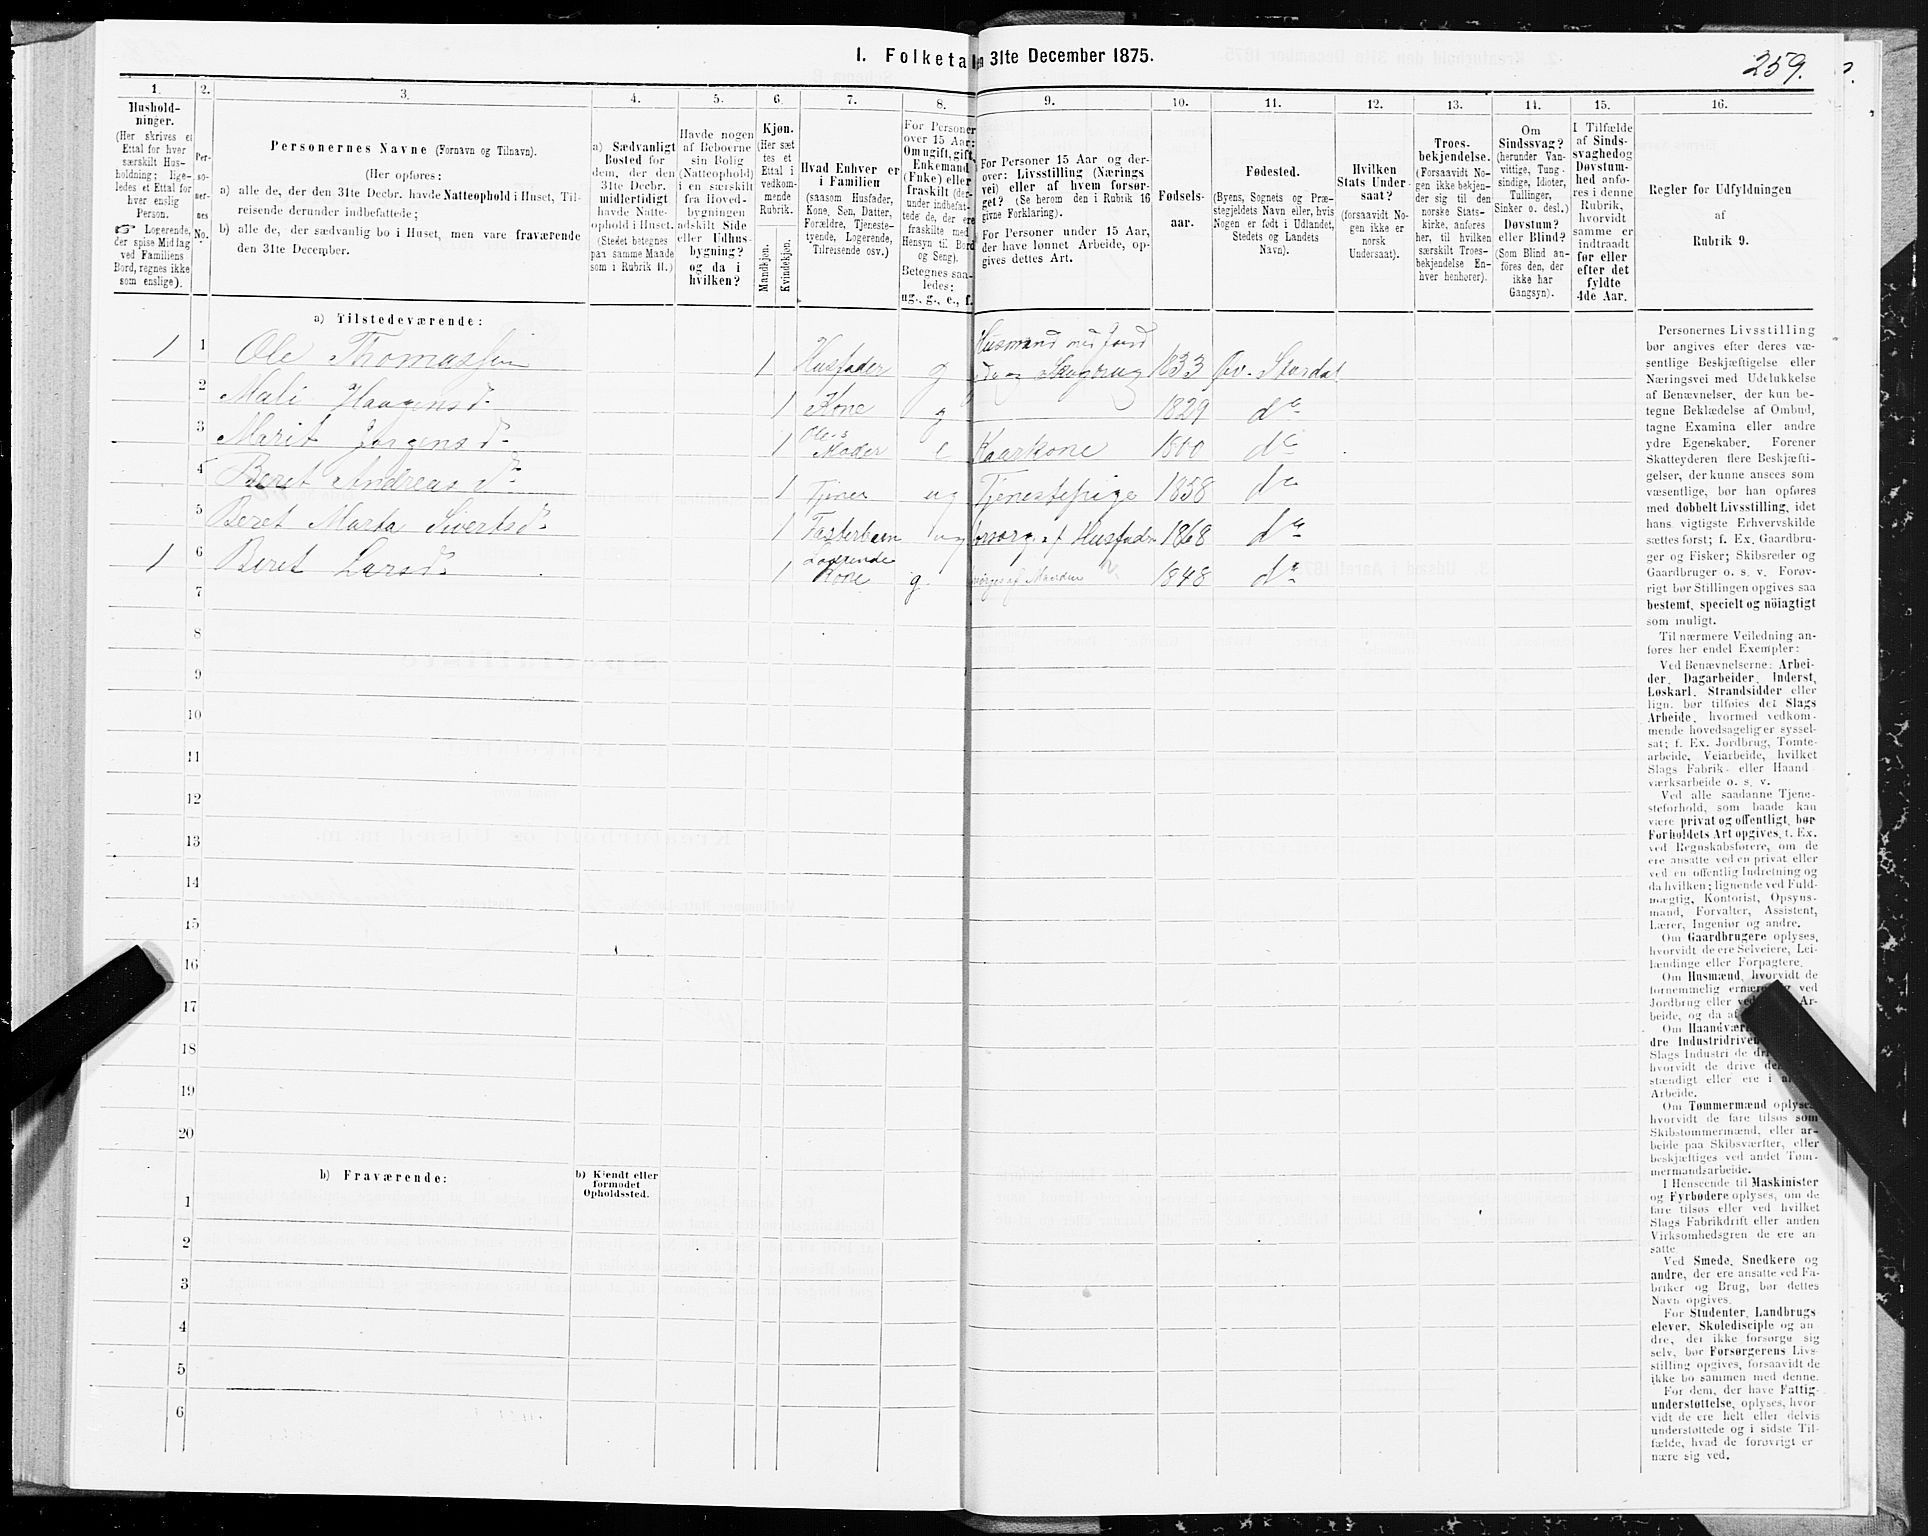 I. Folketa
n 31te December 1875.
259.
1.
2.
3.
4.
5.
6.
7.
8.
9.
10.
11.
12.
13.
14.
15.
16.
Hushold-
ninger.
(Her skrives et
Ettal for hver
særskilt Hus-
holdning; lige-
ledes et Ettal for
hver enslig
Person.
☞ Logerende,
der spise Middag
ved Familiens
Bord, regnes ikke
som enslige).
Per-
so-
ner-
nes
No.
Personernes Navne (Fornavn og Tilnavn).
(Her opføres:
a) alle de, der den 31te Decbr. havde Natteophold i Huset, Til-
reisende derunder indbefattede;
b) alle de, der sædvanlig bo i Huset, men vare fraværende
den 31te December.
a) Sædvanligt
Bosted for
dem, der den
31te Decbr.
midlertidigt
havde Natte-
ophold i Huset.
(Stedet betegnes
paa samme Maade
som i Rubrik 11.)
Havde nogen
af Beboerne
sin Bolig
(Natteophold)
i en særskilt
fra Hoved-
bygningen
adskilt Side
eller Udhus-
bygning?
og da i
hvilken?
Kjøn.
(Her sæt
tes et
Ettal i
vedkom-
mende
Rubrik.
Mandkjøn.
Kvindekjøn.
Hvad Enhver er
i Familien
(saasom Husfader,
Kone, Søn, Datter,
Forældre, Tjeneste-
tyende, Logerende,
Tilreisende osv.)
For Personer
over 15 Aar:
Om ugift, gift,
Enkemand
(Enke) eller
fraskilt (der-
under indbefat-
tede de, der ere
fraskilte med
Hensyn til Bord
og Seng).
Betegnes saa-
ledes:
ug., g., e., f.
For Personer 15 Aar og der-
over: Livsstilling (Nærings
vei) eller af hvem forsør-
get? (Se herom den i Rubrik 16
givne Forklaring).
For Personer under 15 Aar,
der have lønnet Arbeide, op-
gives dettes Art.
Fødsels-
aar.
Fødested.
(Byens, Sognets og Præ-
stegjeldets Navn eller, hvis
Nogen er født i Udlandet,
Stedets og Landets
Navn).
Hvilken
Stats Under-
saat?
(forsaavidt No-
gen ikke er
norsk
Undersaat).
Troes-
bekjendelse.
(Forsaavidt No-
gen ikke bekjen-
der sig til den
norske Stats-
kirke, anføres
her, til hvilken
særskilt Troes-
bekjendelse En-
hver henhører).
Om
Sindssvag?
(herunder Van-
vittige, Tung-
sindige, Idioter,
Tullinger,
Sinker o. desl.)
Døvstum?
eller Blind?
(Som Blind an-
føres den, der
ikke har
Gangsyn).
I Tilfælde
af Sinds-
svaghed og
Døvstum-
hed anfø-
res i denne
Rubrik,
hvorvidt
samme er
indtraadt
før eller
efter det
fyldte
4de Aar.
Regler for Udfyldningen
af
Rubrik 9.
a) Tilstedeværende:
1 1 Ole Thomassen 1 Husfader g Husmand med Jord
Skogbrug 1833 Øv. Stordal
2 Mali Haagensd. 1 Kone g 1829 do
3 Marit Jørgensd. 1 Ole's
Moder e Kaarkone 1800 do
4 Beret Andreasd. 1 Tjener ug Tjenestepige 1858 do
5 Beret Marta Sivertsd. 1 Fosterbarn ug forsørg. af Husfader 1868 do
1 6 Beret Larsd. 1 Logerende
Kone g. af Manden 1848 do
7
8
9
10
11
12
13
14
15
16
17
18
19
20
b) Fraværende:
b) Kjendt eller
formodet
Opholdssted.
1
2
3
4
5
6
Personernes Livsstilling
bør angives efter deres væ-
sentlige Beskjæftigelse eller
Næringsvei med Udelukkelse
af Benævnelser, der kun be-
tegne Beklædelse af Ombud,
tagne Examina eller andre
ydre Egenskaber. Forener
Skatteyderen flere Beskjæfti-
gelser, der kunne ansees som
væsentlige, bør han opføres
med dobbelt Livsstilling, idet
hans vigtigste Erhvervskilde
sættes først; f. Ex. Gaardbru-
ger og Fisker; Skibsreder og
Gaardbruger o. s. v. Forøv-
rigt bør Stillingen opgives saa
bestemt, specielt og nöiagtigt
som muligt.
Til nærmere Veiledning an-
føres her endel Exempler:
Ved Benævnelserne: Arbei-
der, Dagarbeider, Inderst,
Løskarl, Strandsidder eller
lign. bør tilføies det Slags
Arbeide, hvormed vedkom-
mende hovedsageliger syssel-
sat; f. Ex. Jordbrug, Tomte-
arbeide, Veiarbeide, hvilket
Slags Fabrik- eller Haand-
værksarbeide o. s. v.
Ved alle saadanne Tjene-
steforhold, som baade kan
være privat og offentligt, bør
Forholdets Art opgives, f. Ex.
ved Regnskabsførere, om de
ere ansatte ved en privat eller
ved en offentlig Indretning og
da hvilken; lignende ved Fuld-
mægtig, Kontorist, Opsyns-
mand, Forvalter, Assistent,
Lærer, Ingeniør og andre.
Om Gaardbrugere oplyses,
hvorvidt de ere Selveiere, Lei-
lændinge eller Forpagtere.
Om Husmænd, hvorvidt de
fornemmelig ernære sig ved
Jordbrug eller ved Ar-
beide, og da af
Om Haandvær
dre Industridriven
Slags Industri de dri
hvorvidt de drive de
stændigt eller ere i a
Arbeide.
Om Tømmermænd oplyses,
hvorvidt de fare tilsøs som
Skibstømmermænd, eller ar-
beide paa Skibsværfter, eller
beskjæftiges ved andet Tøm-
mermandsarbeide.
I Henseende til Maskinister
og Fyrbødere oplyses, om de
fare tilsøs eller ved hvilket
Slags Fabrikdrift eller anden
Virksomhedsgren de ere an-
satte.
Ved Smede, Snedkere og
andre, der ere ansatte ved Fa-
briker og Brug, bør dettes
Navn opgives.
For Studenter, Landbrugs
elever, Skoledisciple og an-
dre, der ikke forsørge sig
selv, bør Forsørgerens Livs-
stilling opgives, forsaavidt de
ikke bo sammen med denne.
For dem, der have Fattig-
understøttelse, oplyses, hvor-
vidt de ere helt eller delvis
understøttede og i sidste Til-
fælde, hvad de forøvrigt er-
nære sig ved.